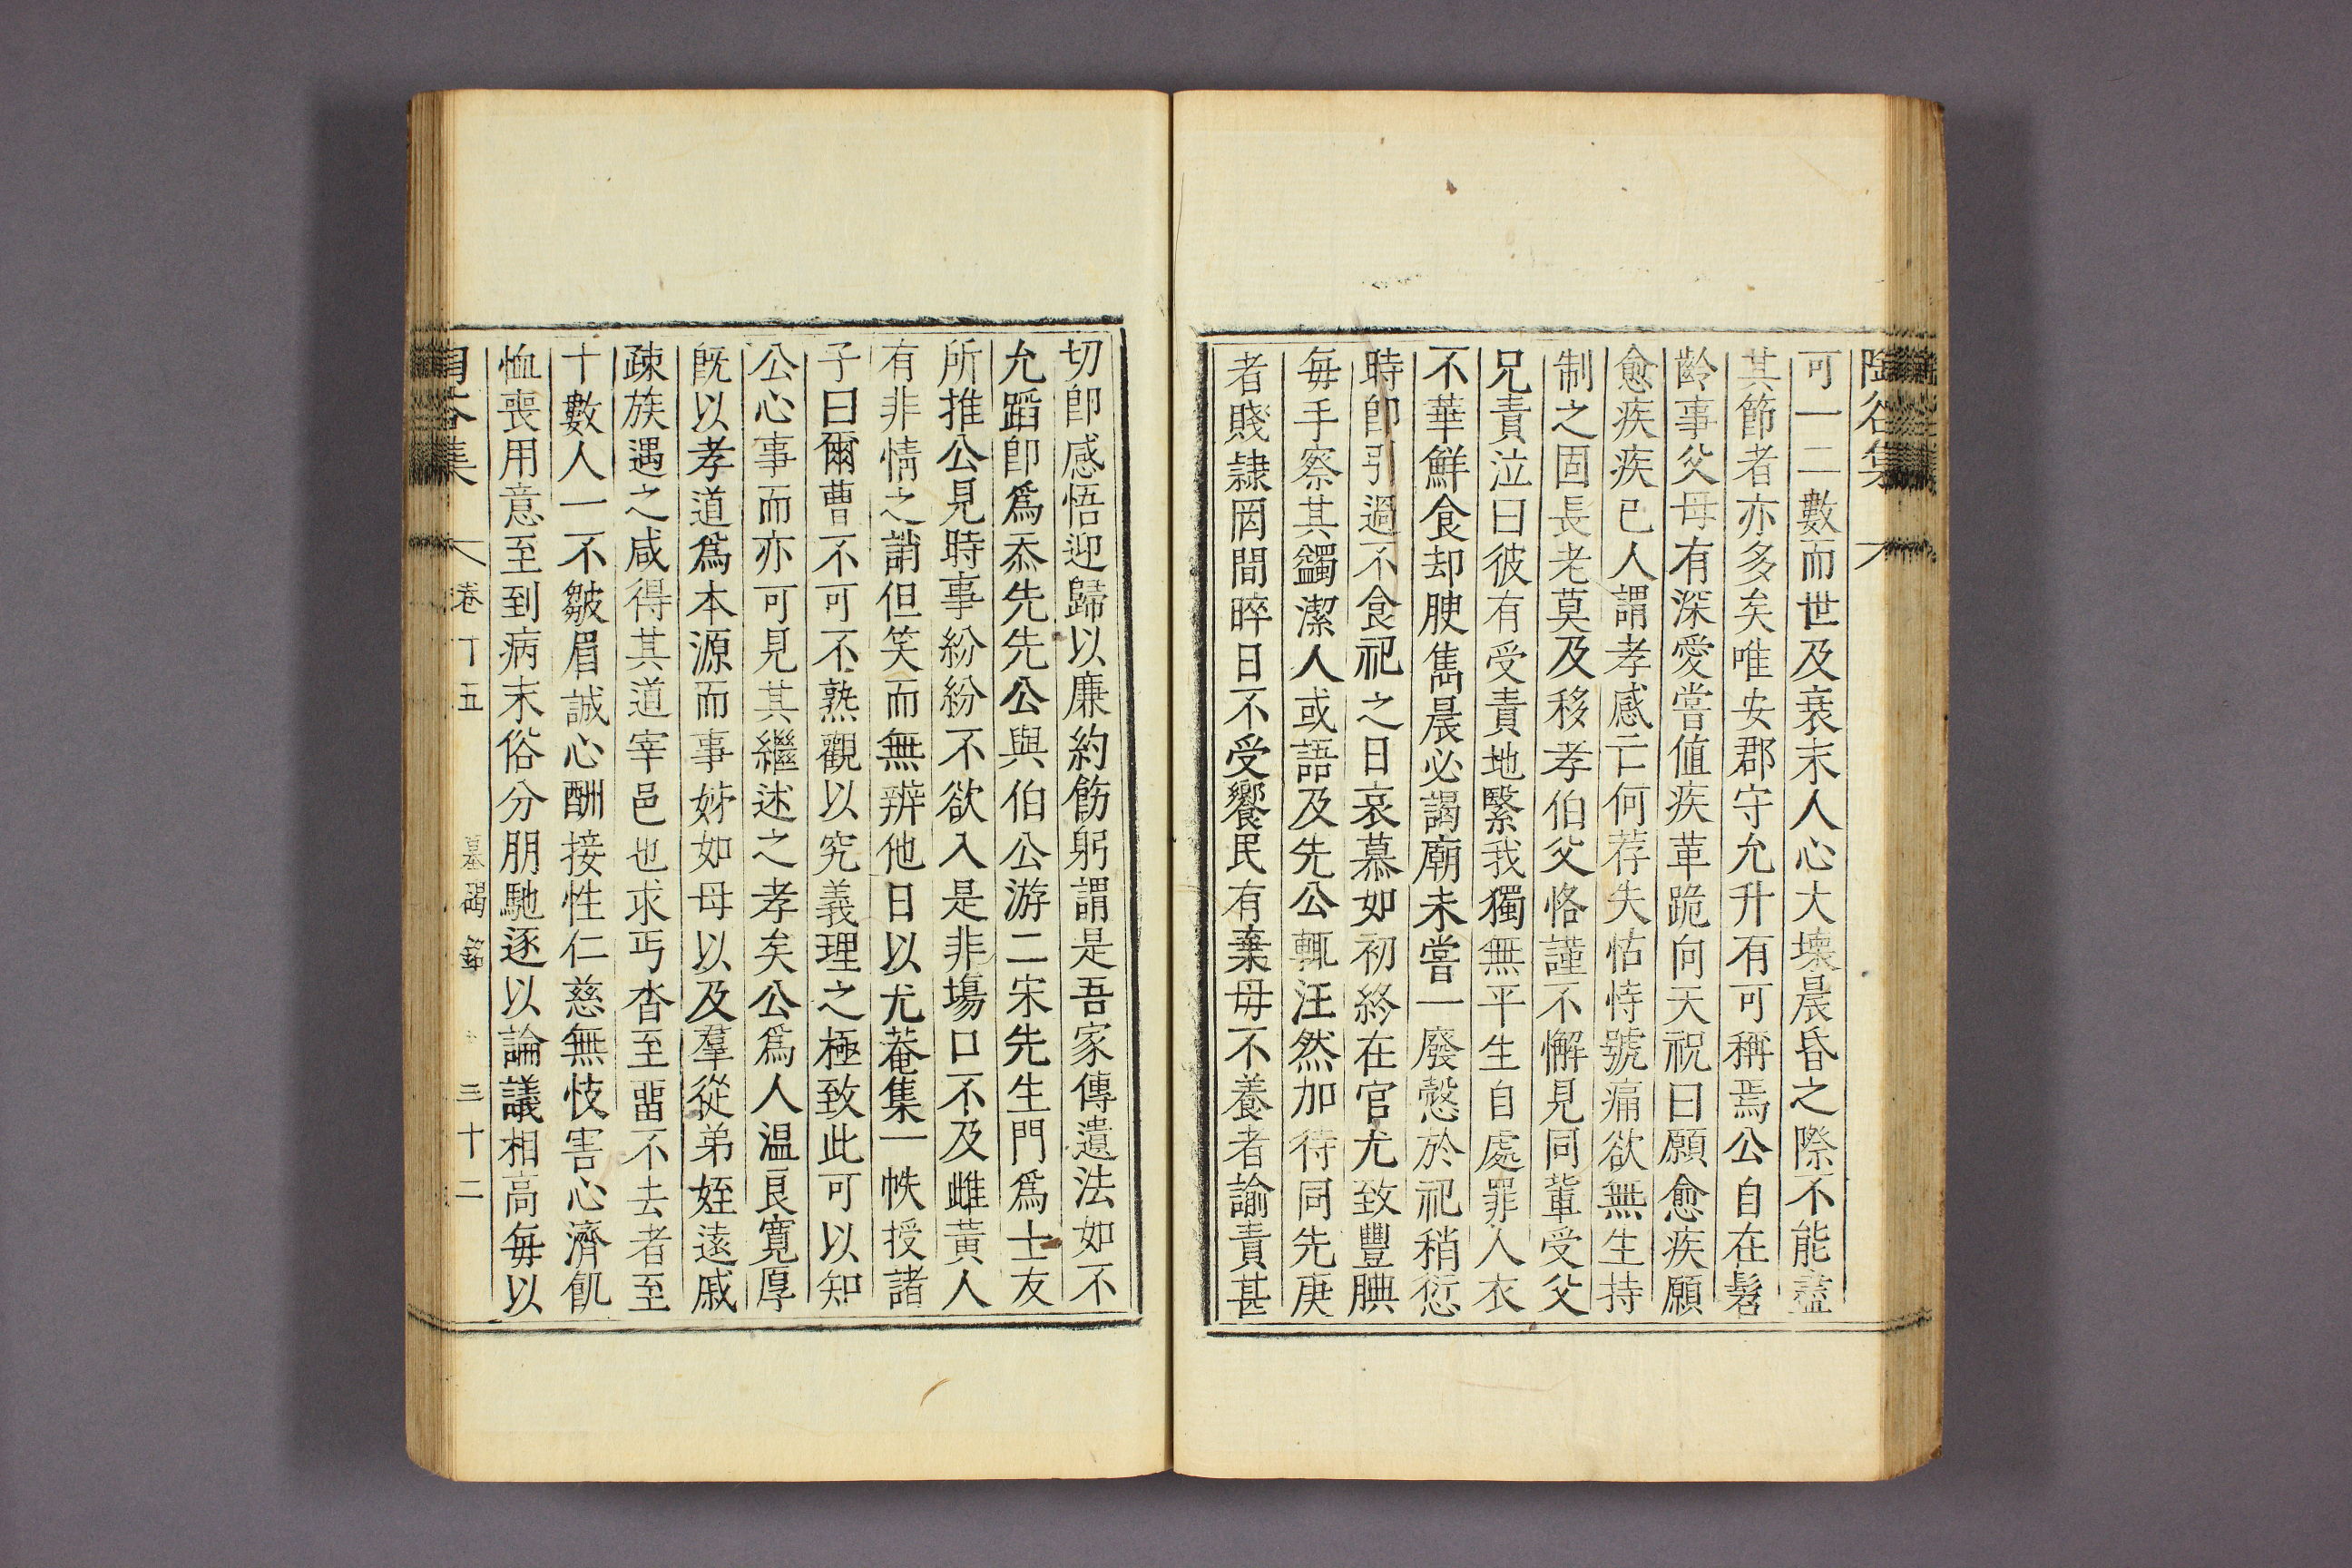 陶谷集
可一二數而世及衰末人心大壞晨昏之際不能盡
其節者亦多矣唯安郡守允升有可稱焉公自在髫
齡事父母有深愛嘗值疾革跪向天祝曰願愈疾願
愈疾疾已人謂孝感云何荐失怙恃號痛欲無生持
制之固長老莫及移孝伯父恪謹不懈見同輩受父
兄責泣曰彼有受責地緊我獨無平生自處罪人衣
不華鮮食却腴雋晨必謁廟未嘗一廢慤於祀稍愆
時卽引過不食祀之日哀慕如初終在官尤致豐腆
每手察其蠲潔人或語及先公輒汪然加待同先庚
者賤隷罔間晬日不受饗民有棄母不養者諭責甚
切卽感悟迎歸以廉約飭躬謂是吾家傳遺法如不
允蹈卽爲忝先先公與伯公游二宋先生門爲士友
所推公見時事紛紛不欲入是非塲口不及雌黃人
有非情之誚但笑而無辨他日以尤菴集一帙授諸
子曰爾曹不可不熟觀以究義理之極致此可以知
公心事而亦可見其繼述之孝矣公爲人温良寬厚
旣以孝道爲本源而事姊如母以及羣從弟姪遠戚
疎族遇之咸得其道宰邑也求丐沓至畱不去者至
十數人一不皺眉誠心酬接性仁慈無忮害心濟飢
恤喪用意至到病末俗分朋馳逐以論議相高每以
陶谷集 卷十五 墓碣銘 三十二